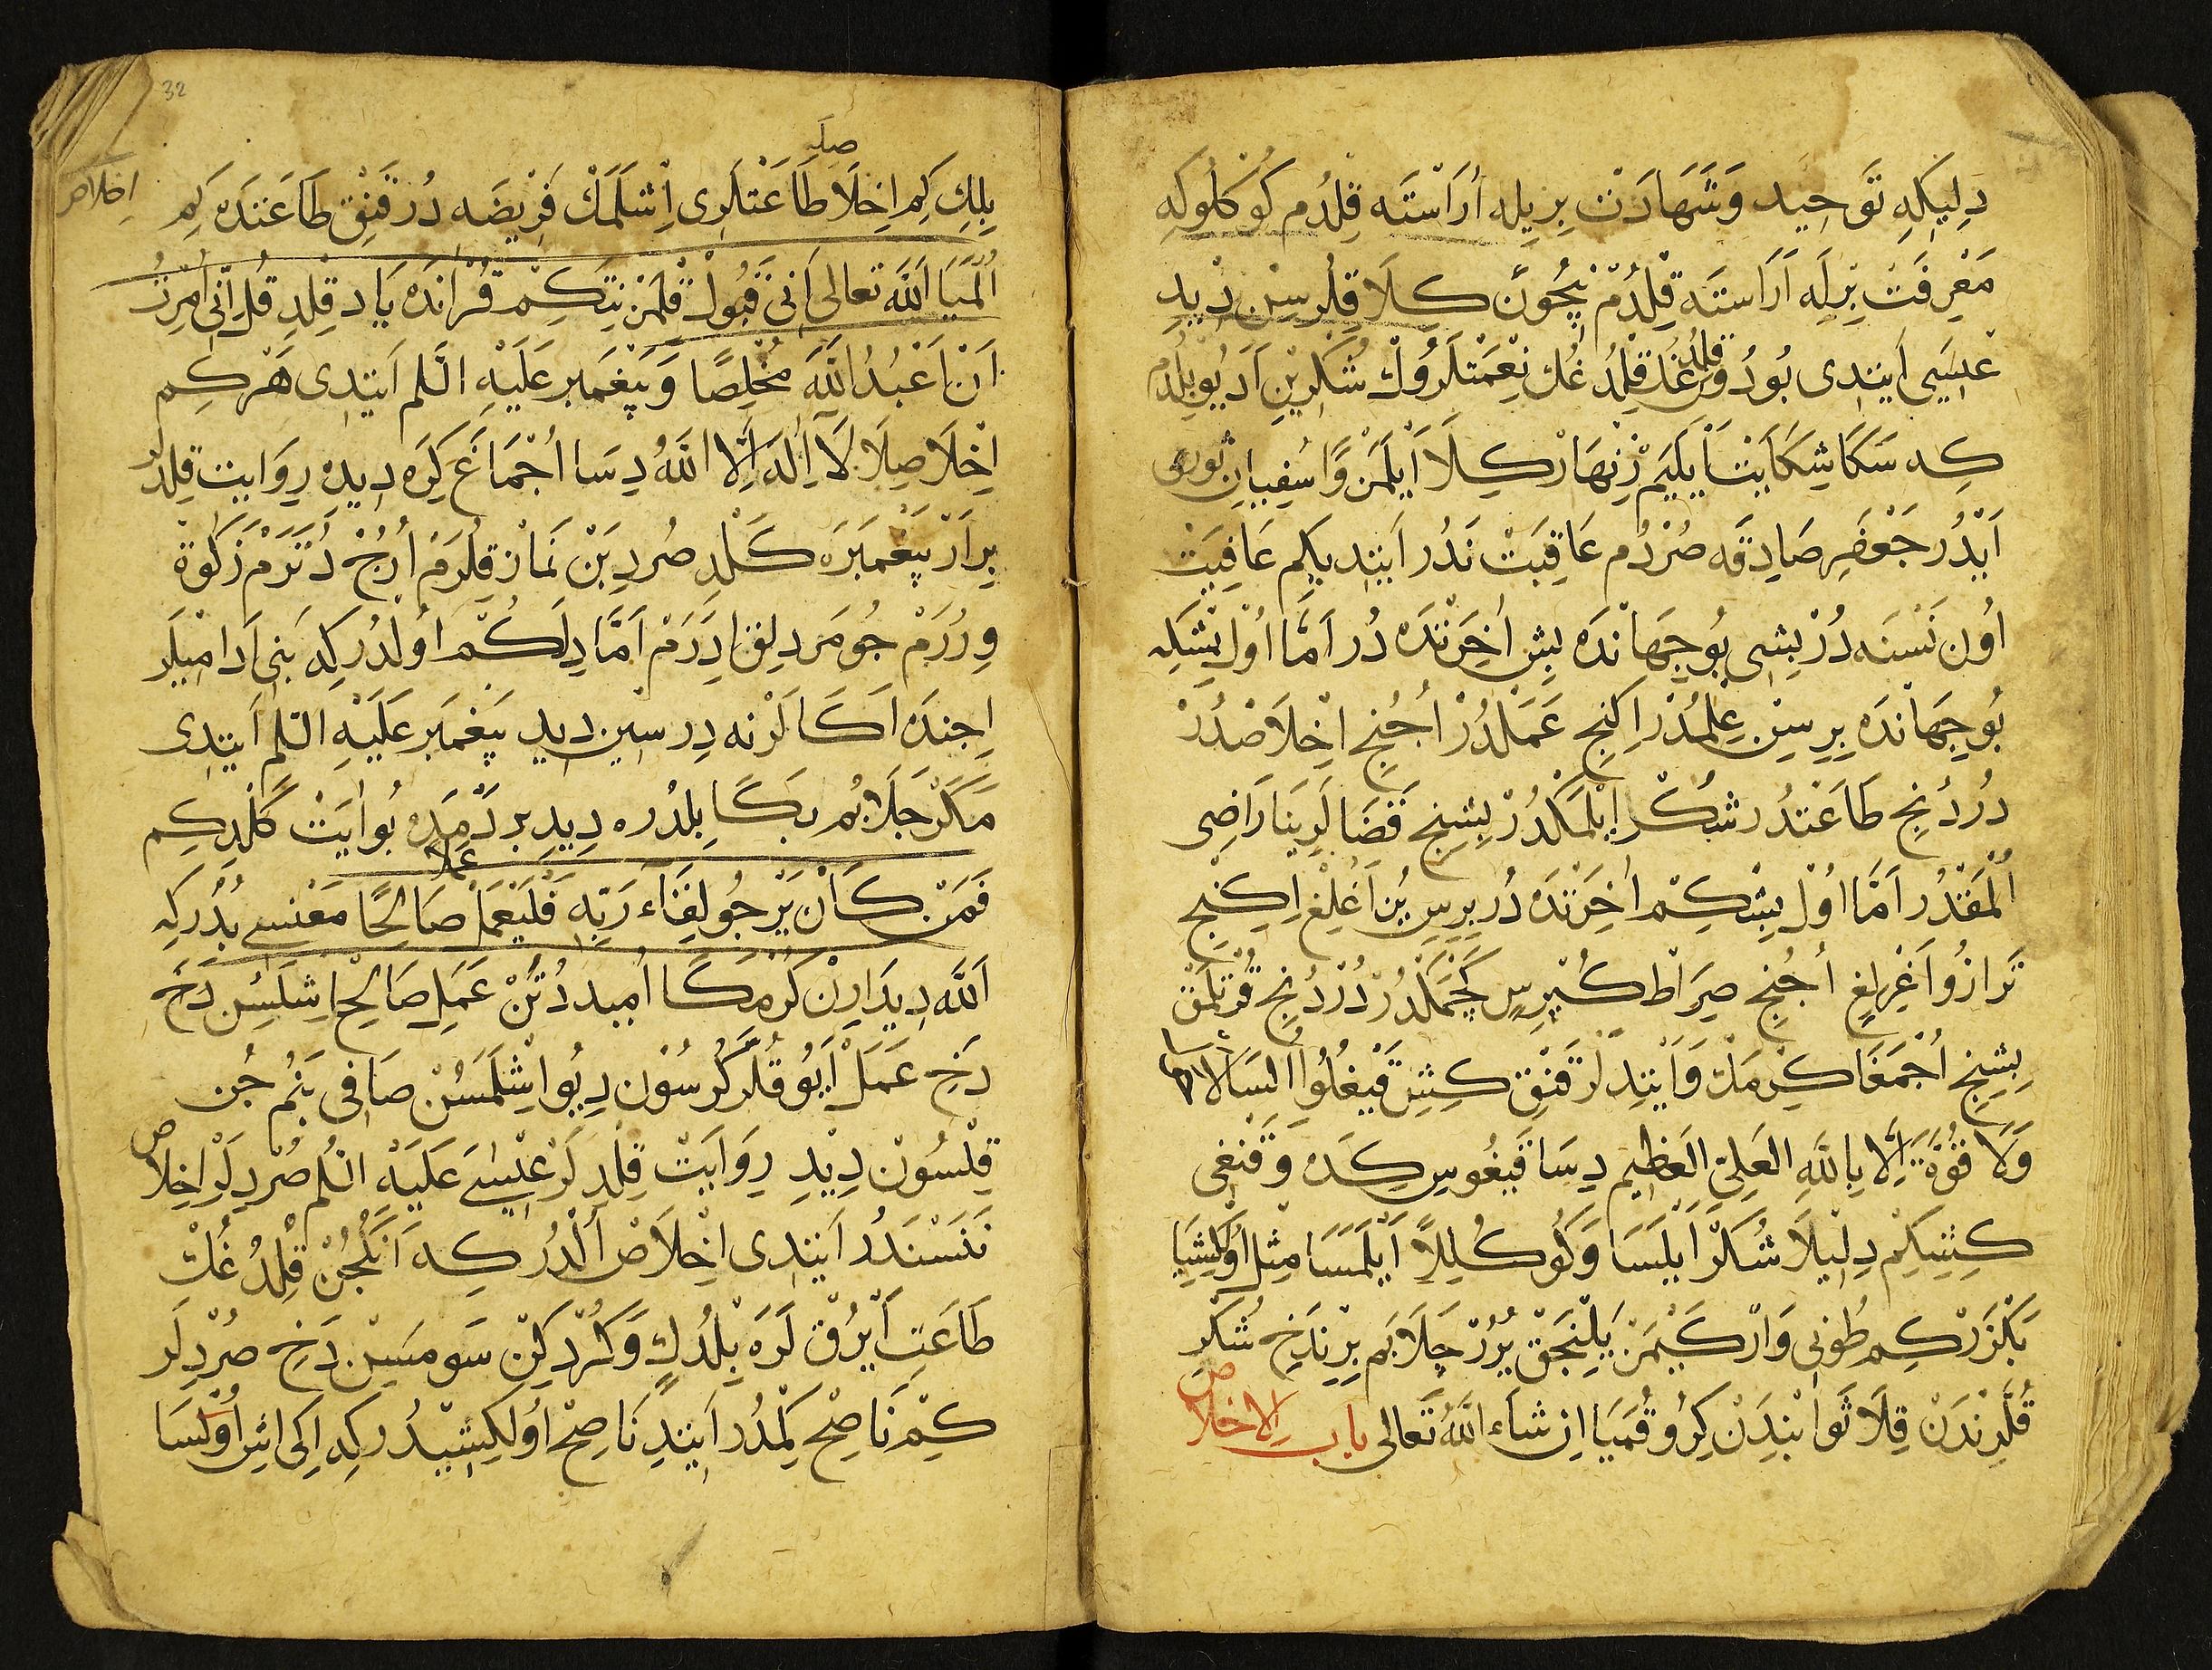 دِلِيكِلِه تَوحِيد وَشَهَادَتْ بِرِيلِه اَرَاسْتَه قِلْدُم كُوكْلُوكِه
مَعْرِفَتْ بِرْلَه اَرَاسْتَه قِلْدُمْ نِچُونْ كِلَا قِلُرسِنْ دِيدِ
عِيسَى اَيتِدى بُودُورُغَا قِلْدُغُك نِعْمَتْلَرُوك شُكْرِيْنِ اَدَ يُوبِلْدُم
قلدغ
كِه سَكَا شِكَايَتْ اَيْلَيَمْ زِنْهَارْ كِلَا اَيْلَمَنْ وَاسُفِيَانِ ثَوْرِى
اَيْدُر جَعْفَرِ صَادِقَه صُرْدُم عَاقِبَتْ نَدُر اَيتدِيكِم عَافِيَتْ
اُون نَسْنَه دُرْ بِشِى بُو جِهَانْدَه بِش اَخِرَتْدَه دُر اَمَّا اُوْل بِشكِه
بُو جِهَانْدَه بِرِسِنْ عِلْمُدُرْ اِكِنْجِ عَمَلْدُرْ اُجُنْجِ اِخْلَاصْدُرْ
دُرْدُنْجِ طَاعَتْدُر شُكْر اَيْلَمَكْدُرْ بِشِنْجِ قَضَالَرِينَا رَاضِى
اُلْمَقْدُرْ اَمَّا اُوْل بِشْكِم اَخِرَتْدَه دُر بِرِسِ بُنْ اَغُلِغ اِكِنْجِ
تَرَازُوْ اَغِرلِغِ اُجُنْجِ صِرَاطْ كُپْرِسِ كَچْمَكْدُرْ دُرْدُنْجِ قُرْتُلْمَقْ
بِشِنْجِ اُجْمَغَا كِرْمَكْ وَاَيتدِلَرْ قَنِق كِشِ قَيْغُلُو اُلْسَا لَا
وَلَا قُوَّةَ اِلَّا بِاللَّهِ العَلِىِّ الْعَظِيم دِسَا قَيغُوسِ كِدَه وَقَنْغِى
كِشِيكِمْ دِلِيلَا شُكْرْ اَيْلَسَا وَكُوكُلِلَا اَيْلَمَسَا مِثْلِ اُوْكِشِيَا
بَكْزَرْكِم طُونِى وَارْ كَيْمَزْ يَلِنْجَقْ يُرُرْ چَلَابُم بِزِنَدَخِ شُكْر
قُلْلَرِنْدَنْ قِلَا ثَوَابِنْدَنْ كِرُو قُمَيَا اِن شَاء اللَّهُ تَعَالى باب الاخلاص
32
بِلِكِ كِم اِخِلَا طَاعَتْلَرِى اِشْلَمَكْ فَرِيضَه دُر قَنِقْ طَاعَتدَه كِم
صيله
اخلاص
اُلْمَيَا اَللَّه تَعَالى اَنِى قَبُولْ قِلْمَزْ نِتَكِمْ قُرْاَنْدَه يَاد قِلْدِ قُلْ اِنِّى اُمِرْتُ
اَنْ اَعْبُدُ اللَّهَ مُخْلِصًا وَپَيْغَمْبَر عَلَيْهِ السّلم اَيتِدى هَرْكِم
اِخْلَاصِيلَا لَا اِلَهَ اِلَّا اللَّهُ دِسَا اُجْمَاغَ كِرَه دِيدِ رِوَايَت قِلْدِلَر
بِر اَرْ پَيْغَمْبَرَه كَلْدِ صُردِ بَنْ نَمَازْ قِلُرَمْ اُرُجْ دُتَرَمْ زَكَوة
وِرُرَمْ جُومَردلِق اِدَرَمْ اَمَّا دِلَكُم اُولدُركِه بَنِى اَدَامْلَر
اِچِنْدَه اَكَالَرْ نه دِرسِين دِيدِ پَيْغَمْبَر عَلَيْهِ السّلم اَيتِدى
مَكَرْ چَلَابُم بَكَا بِلدُرَه دِيدِ بِر دَمْدَه بُو اٰيَتْ كَلْدِكِم
فَمَنْ كَانَ يَرْجُو لِقَاءَ رَبِّهِ فَلْيَعْمَلْ صَالِحًا مَعْنِسِ بُدُركِه
عملا
اَللَّه دِيدَارِنْ كُرْمَكَا اُمِيد دُتَنْ عَمَلِ صَالِحْ اِشْلَسُن دَخِ
دَخِ عَمَلْ اَيُو قُلَّر كُرسُوْن دِيُو اِشْلَمَسُنْ صَافِى بَنُم چُن
قِلْسُوْن دِيدِ رِوَايَتْ قِلْدِلَرْ عِيْسىَ عَلَيْهِ السّلم صُردِلَرْ اِخْلَاص
نَنَسْنَدُر اَيتدِى اِخْلَاصْ اُلْدُركِه اَنْكُچُنْ قِلْدُغُكْ
طَاعَتِ اَيْرُقْلَرَه بِلدُكِ وَكُرْدكِنْ سَومَسَيْن دَخِ صُرْدِلَر
كِمْ نَاصِحْ كِمْدُر اَيتدِ نَاصِحْ اُولكِشِيدُركِه اِكِى اِش اُوْلْسَا